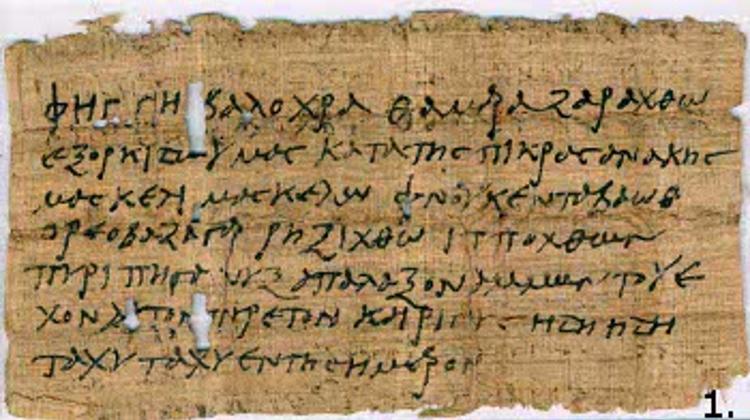 βαλοχρα θαμρα ζαραχθω
εξορκιζω υμας κατα της πικρας ανακης
μασκελι μασκελλω φνουκενταβαωθ
ορεοβαζαγρα ρηξιχθων ιπποχθων
πυριπηγανυξ απαλαξον αμμων του ε
χον αυτον πυρετου ηδη ηδη
ταχυ ταχυ εν τη σημερον
1.